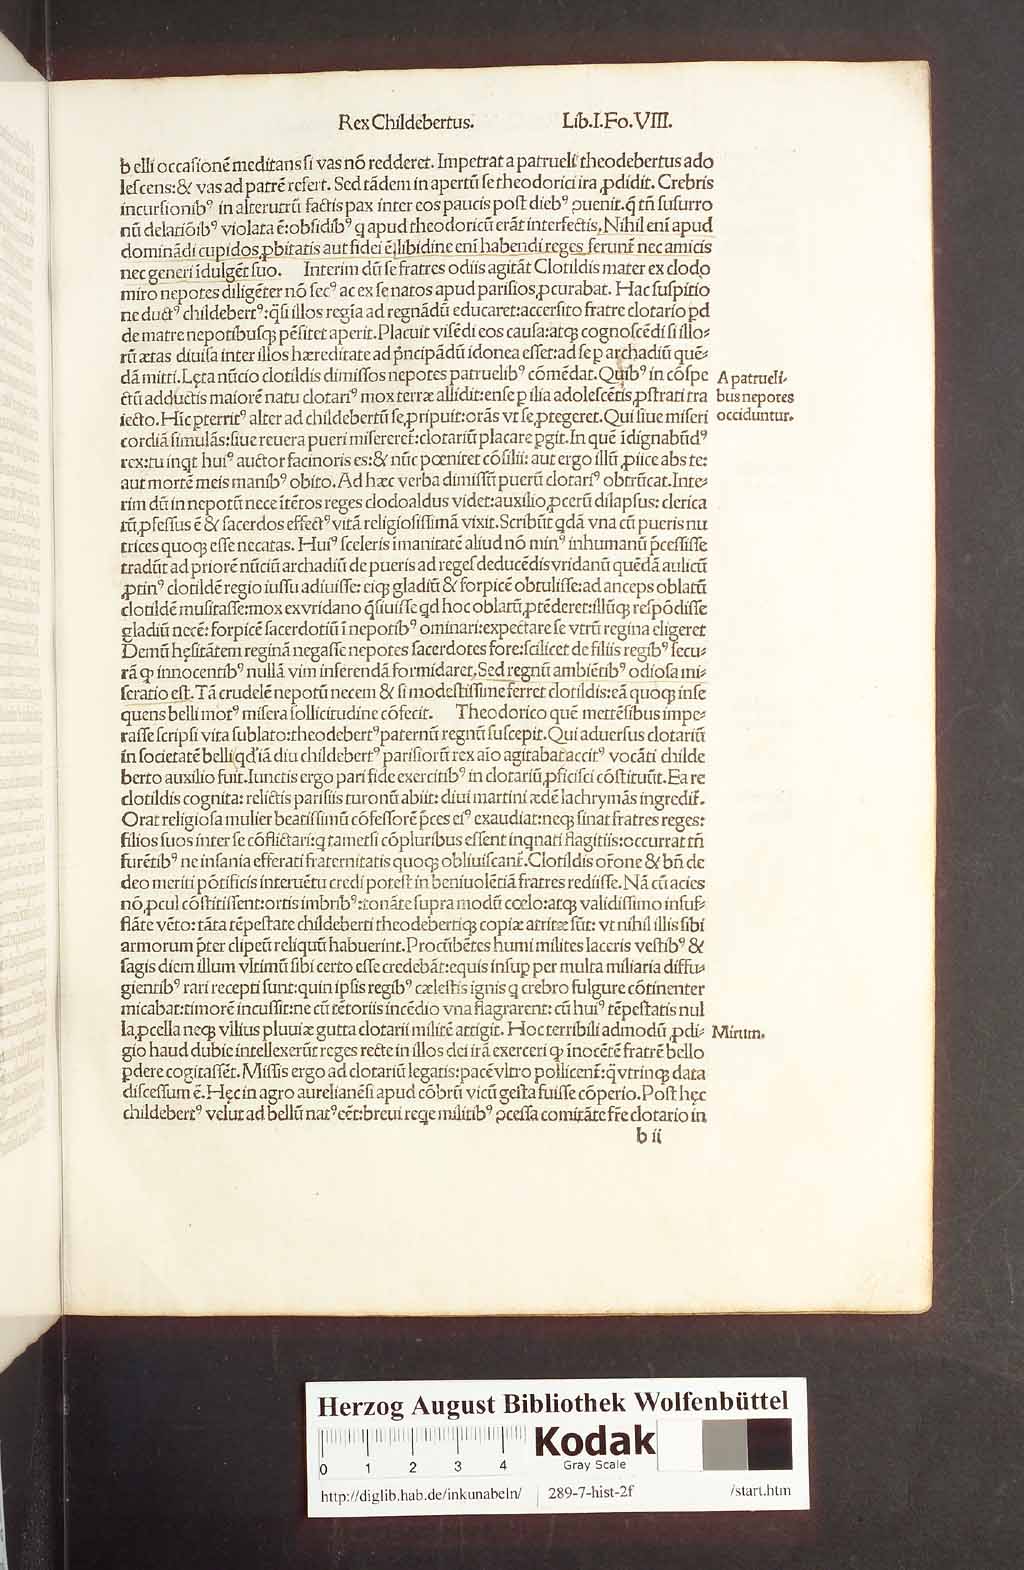 Rex Childebertus. Lib.I.Fo.VIII.
belli occasionē meditans si vas nō redderet. Impetrat a patrueli theodebertus ado
lescens:& vas ad patrē refert. Sed tādem in apertū se theodorici ira ꝓdidit. Crebris
incursionibꝰ in alterutrū factis pax inter eos paucis post diebꝰ ꝯuenit.q̄ tn̄ susurro
nū delatiōibꝰ violata ē:obsidibꝰ q apud theodoricū erāt interfectis. Nihil eni apud
dominādi cupidos ꝓbitatis aut fidei ē: libidine eni habendi reges ferunt̄ nec amicis
nec generi īdulgēt suo. Interim dū se fratres odiis agitāt Clotildis mater ex clodo
miro nepotes diligēter nō secꝰ ac ex se natos apud parisios ꝓcurabat. Hac suspitio
ne ductꝰ childebertꝰ:q̄si illos regia ad regnādū educaret:accersito fratre clotario ꝑd
de matre nepotibusꝗ pēsitet aperit. Placuit visēdi eos causa:atꝗ cognoscēdi si illo⸗
rū ætas diuisa inter illos hæreditate ad p̄ncipādū idonea esset:ad se p archadiū quē⸗
dā mitti. Lęta nūcio clotildis dimissos nepotes patruelibꝰ cōmēdat. Quibꝰ in cōspe
ctū adductis maiorē natu clotariꝰ mox terræ allidit:ense ꝑ ilia adolescētis ꝓstrati tra
iecto. Hic ꝑterritꝰ alter ad childebertū se ꝓripuit:orās vt se ꝓtegeret. Qui siue miseri
cordiā simulās:siue reuera pueri misereret̄:clotariū placare ꝑgit. In quē īdignabūdꝰ
rex:tu inqt huiꝰ auctor facinoris es:& nūc pœnitet cōsilii: aut ergo illū ꝓiice abs te:
aut mortē meis manibꝰ obito. Ad hæc verba dimissū puerū clotariꝰ obtrūcat. Inte⸗
rim dū in nepotū nece ītētos reges clodoaldus videt:auxilio ꝓcerū dilapsus: clerica
tū ꝓfessus ē & sacerdos effectꝰ vitā religiosissimā vixit. Scribūt qdā vna cū pueris nu
trices quoꝗ esse necatas. Huiꝰ sceleris īmanitatē aliud nō minꝰ inhumanū p̄cessisse
tradūt ad priorē nūciū archadiū de pueris ad reges deducēdis vridanū quēdā aulicū
ꝓtinꝰ clotildē regio iussu adiuisse: eiꝗ gladiū & forpicē obtulisse:ad anceps oblatū
clotildē musitasse:mox ex vridano q̄siuisse qd hoc oblatū ꝓtēderet:illūꝗ respōdisse
gladiū necē: forpicē sacerdotiū ī nepotibꝰ ominari:expectare se vtrū regina eligeret
Demū hęsitātem reginā negasse nepotes sacerdotes fore:scilicet de filiis regibꝰ secu⸗
rā ꝙ innocentibꝰ nullā vim inferendā formidaret. Sed regnū ambiētibꝰ odiosa mi⸗
seratio est. Tā crudelē nepotū necem & si modestissime ferret clotildis:eā quoꝗ inse
quens belli motꝰ misera sollicitudine cōfecit. Theodorico quē mettēsibus impe⸗
rasse scripsi vita sublato:theodebertꝰ paternū regnū suscepit. Qui aduersus clotariū
in societatē belli qd' iā diu childebertꝰ parisiorū rex aīo agitabat accitꝰ vocāti childe
berto auxilio fuit. Iunctis ergo pari fide exercitibꝰ in clotariū ꝓficisci cōstituūt. Ea re
clotildis cognita: relictis parisiis turonū abiit: diui martini ædē lachrymās ingredit̄.
Orat religiosa mulier beatissimū cōfessorē p̄ces eiꝰ exaudiat:neꝗ sinat fratres reges:
filios suos inter se cōflictari:q tametsi cōpluribus essent inqnati flagitiis:occurrat tn̄
furētibꝰ ne insania efferati fraternitatis quoꝗ obliuiscant̄. Clotildis or̄one & bn̄ de
deo meriti pōtificis interuētu credi potest in beniuolētiā fratres rediisse. Nā cū acies
nō ꝓcul cōstitissent:ortis imbribꝰ:tonāte supra modū cœlo:atꝗ validissimo insuf⸗
flāte vēto: tāta tēpestate childeberti theodebertiꝗ copiæ attritæ sūt: vt nihil illis sibi
armorum p̄ter clipeū reliquū habuerint. Procūbētes humi milites laceris vestibꝰ &
sagis diem illum vltimū sibi certo esse credebāt:equis insuꝑ per multa miliaria diffu⸗
gientibꝰ rari recepti sunt:quin ipsis regibꝰ cælestis ignis q crebro fulgure cōtinenter
micabat:timorē incussit:ne cū tētoriis incēdio vna flagrarent: cū huiꝰ tēpestatis nul
la ꝓcella neꝗ vilius pluuiæ gutta clotarii militē attigit. Hoc terribili admodū ꝓdi⸗
gio haud dubie intellexerūt reges recte in illos dei irā exerceri ꝙ īnocētē fratrē bello
ꝑdere cogitassēt. Missis ergo ad clotariū legatis:pacē vltro pollicent̄: q̄ vtrinꝗ data
discessum ē. Hęc in agro aurelianēsi apud cōbrū vicū gesta fuisse cōperio. Post hęc
childebertꝰ velut ad bellū natꝰ eēt:breui rege militibꝰ ꝑcessa comitāte fr̄e clotario in
b ii
A patrueli⸗
bus nepotes
occiduntur.
Mirum.
Herzog August Bibliothek Wolfenbüttel
0 1 2 3 4
Kodak
Gray Scale
http://diglib.hab.de/inkunabeln/ 289-7-hist-2f /start.htm